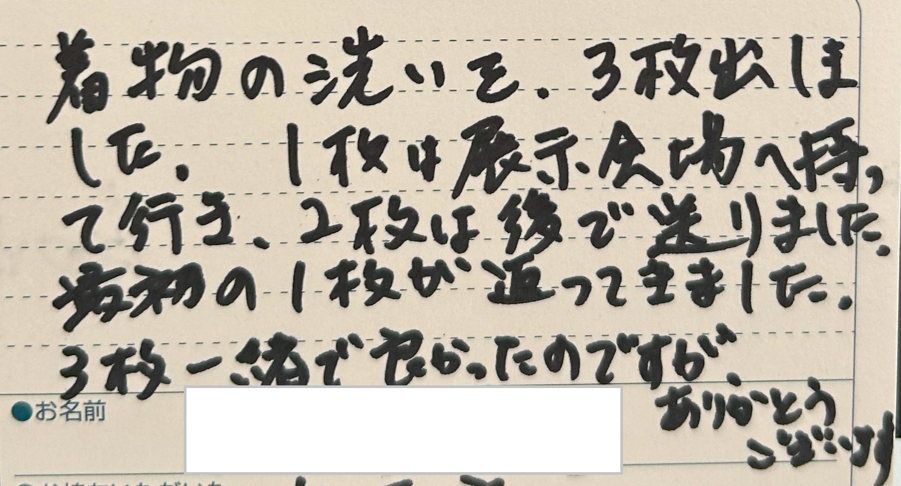 着物の洗いを、3枚出しま
した。 1枚は展示会場へ持っ
て行き、2枚は後で送りました。
最初の1枚が返ってきました。
3枚一緒で良かったのですが
ありがとう
ございます
お名前